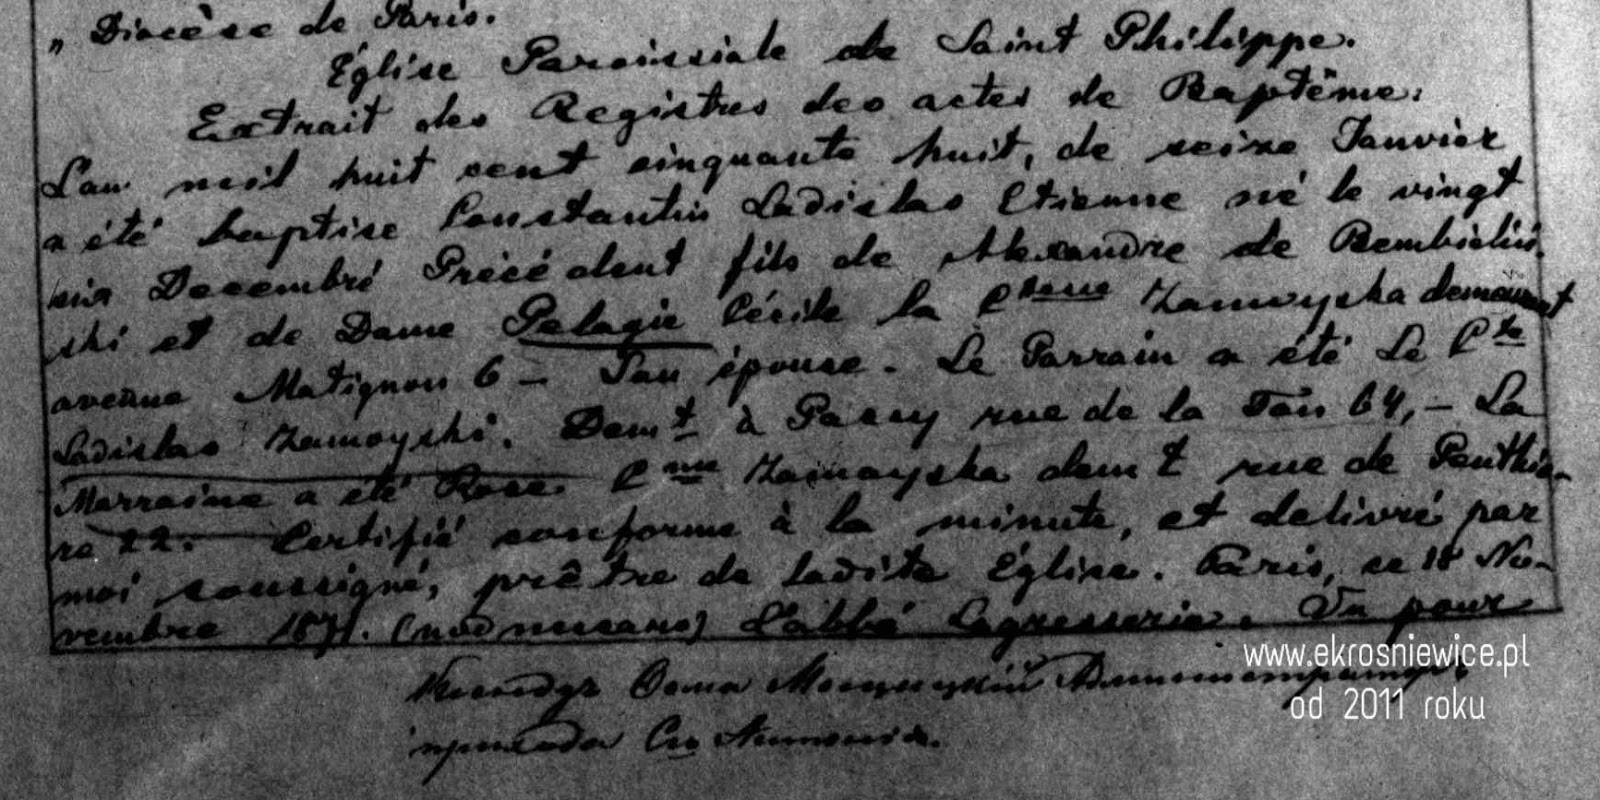 „ Diocèse de Paris.
Église Paroissiale de Saint Philippe.
Extrait des Registres des actes de Baptême.
L'an mil huit cent cinquante huit, de seize Janvier
a été baptise Constantin Ladislas Etienne né le vingt
six Decembre Précédent fils de Alexandre de Rembielin-
ski et de Dame Pelagie Cécile la Ctesse Zamoyska demeurant
avenue Matignon 6 – Son épouse. Le Parrain a été Le Cte
Ladislas Zamoyski. Demt à Passy rue de la Tour 64, – La
Marraine a été Rose Ctesse Zamoyska demt rue de Penthiè-
re 22. Certifié conforme à la minute, et delivré par
moi soussigné, prêtre de ladite Église. Paris, ce 18 No-
vembre 1871. (подписано) L'abbé Lagresserie. Vu pour
Ксендзъ Ѳома Администраторъ
прихода Св
www.ekrosniewice.pl
od 2011 roku